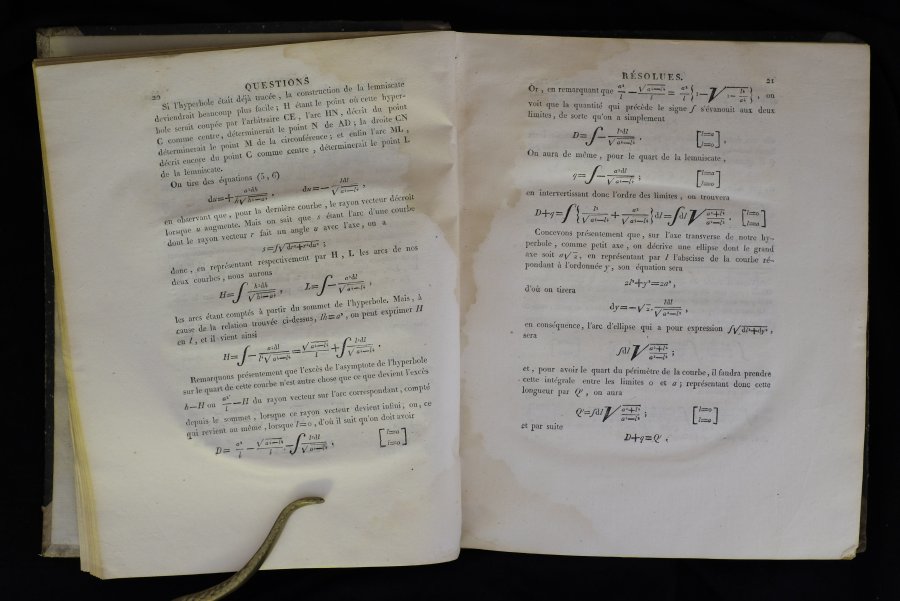 20
QUESTIONS
Si l'hyperbole était déjà tracée, la construction de la lemniscate
deviendrait beaucoup plus facile; H étant le point où cette hyper-
bole serait coupée par l'arbitraire CE, l'arc HN, décrit du point
C comme centre, déterminerait le point N de AD; la droite CN
déterminerait le point M de la circonférence; et enfin l'arc ML,
décrit encore du point C comme centre, déterminerait le point L
de la lemniscate.
On tire des équations (5, 6)
du=+ a²dh / h√(h⁴—a⁴) , du=— ldl / √(a⁴—l⁴) ,
en observant que, pour la dernière courbe, le rayon vecteur décroit
lorsque u augmente. Mais on sait que s étant l'arc d'une courbe
dont le rayon vecteur r fait un angle u avec l'axe, on a
s=∫√(dr²+r²du²) ;
donc, en représentant respectivement par H, L les arcs de nos
deux courbes, nous aurons
H=∫ h²dh / √(h⁴—a⁴) , L=∫— a²dl / √(a⁴—l⁴) ,
les arcs étant comptés à partir du sommet de l'hyperbole. Mais, à
cause de la relation trouvée ci-dessus, lh=a², on peut exprimer H
en l, et il vient ainsi
H=∫— a⁴dl / l²√(a⁴—l⁴) = √(a⁴—l⁴) / l +∫ l²dl / √(a⁴—l⁴) .
Remarquons présentement que l'excès de l'asymptote de l'hyperbole
sur le quart de cette courbe n'est autre chose que ce que devient l'excès
h—H ou a²/l —H du rayon vecteur sur l'arc correspondant, compté
depuis le sommet, lorsque ce rayon vecteur devient infini, ou, ce
qui revient au même, lorsque l=0, d'où il suit qu'on doit avoir
D= a²/l — √(a⁴—l⁴) / l —∫ l²dl / √(a⁴—l⁴) , [l=a l=0]
RÉSOLUES.
21
Or, en remarquant que a²/l — √(a⁴—l⁴) / l = a²/l {1—√(1— l⁴/a⁴)} , on
voit que la quantité qui précède le signe ∫ s'évanouit aux deux
limites, de sorte qu'on a simplement
D=∫— l²dl / √(a⁴—l⁴) . [l=a l=0] .
On aura de même, pour le quart de la lemniscate,
q=∫— a²dl / √(a⁴—l⁴) ; [l=a l=0]
en intervertissant donc l'ordre des limites, on trouvera
D+q=∫{ l² / √(a⁴—l⁴) + a² / √(a⁴—l⁴) }dl=∫dl√( a²+l² / a²—l² ) . [l=0 l=a]
Concevons présentement que, sur l'axe transverse de notre hy-
perbole, comme petit axe, on décrive une ellipse dont le grand
axe soit a√2, en représentant par l l'abscisse de la courbe ré-
pondant à l'ordonnée y, son équation sera
2l²+y²=2a²,
d'où on tirera
dy=—√2. ldl / √(a²—l²) ,
en conséquence, l'arc d'ellipse qui a pour expression ∫√(dl²+dy²),
sera
∫dl√( a²+l² / a²—l² ) ;
et, pour avoir le quart du périmètre de la courbe, il faudra prendre
cette intégrale entre les limites 0 et a; représentant donc cette
longueur par Q', on aura
Q'=∫dl√( a²+l² / a²—l² ) ; [l=0 l=a]
et par suite
D+q=Q',